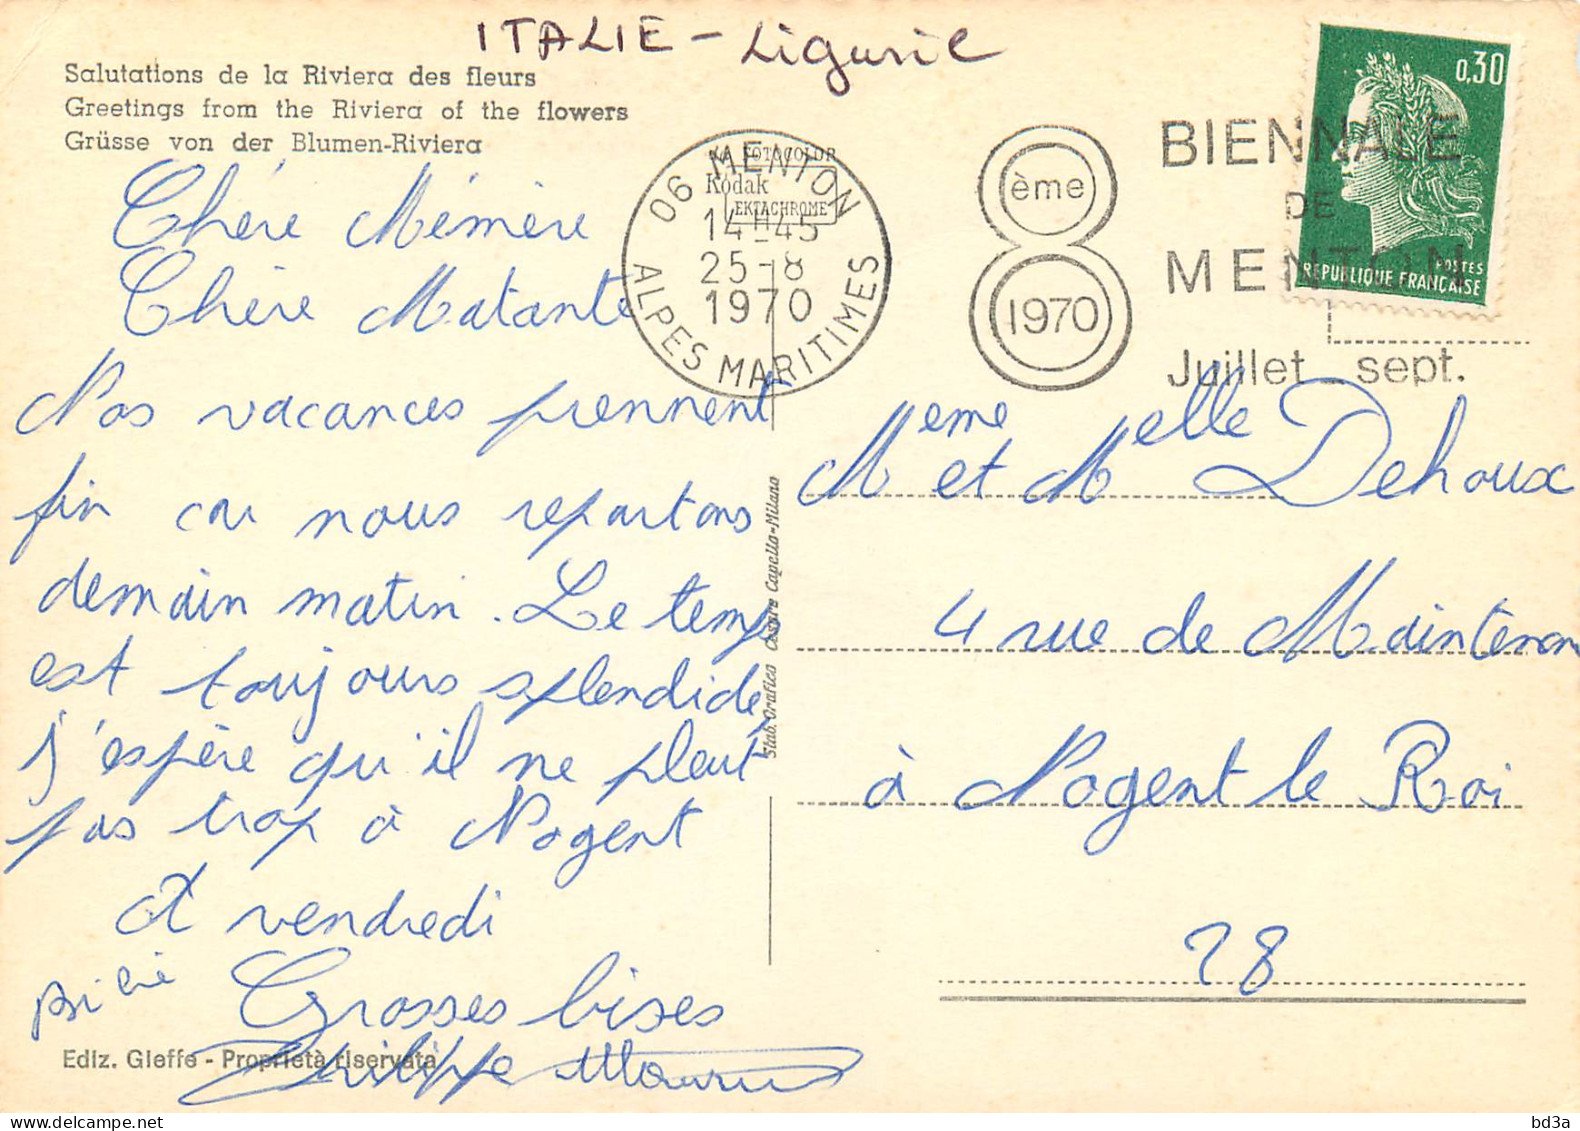 ITALIE - Ligurie
Salutations de la Riviera des fleurs
Greetings from the Riviera of the flowers
Grüsse von der Blumen-Riviera
Chère Mémère
Chère Matante
Nos vacances prennent
fin car nous repartons
demain matin. Le temps
est toujours splendide,
j'espère qu'il ne pleut
pas trop à Nogent
A vendredi
Grosses bises
Philippe
Ediz. Gieffe - Proprietà riservata
FOTOCOLOR
Kodak
EKTACHROME
06 MENTON
14H45
25-8
1970
ALPES MARITIMES
8ème
1970
BIENNALE
DE
MENTON
Juillet sept.
0,30
POSTES
REPUBLIQUE FRANÇAISE
Stab. Grafico Cesare Capello-Milano
Meme et Melle Dehoux
4 rue de Maintenon
à Nogent le Roi
28
bd3a